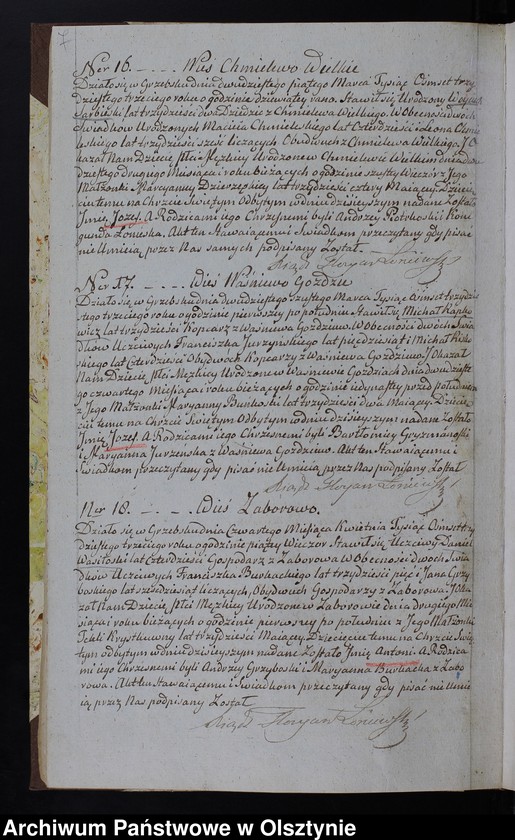 7
Ner 16. - - - . Wieś Chmielewo Wielkie
Działo się w Grzebsku dnia dwudziestego piątego Marca Tysiąc Ośmset trzy
dziestego trzeciego roku o godzinie dziewiątey rano. Stawił się Urodzony
Sarbiński lat trzydzieści dwa Dziedzic z Chmielewa Wielkiego. W Obecności dwóch
Swiadków Urodzonych Macieia Chmieleskiego lat Czterdzieści i Leona Chmie
leskiego lat trzydzieści sześć liczących Obudwuch z Chmielewa Wielkiego. I O
kazał Nam Dziecię płci Męzkiey Urodzone w Chmielewie Wielkim dnia dwu
dziestego drugiego Miesiąca i roku bieżących o godzinie szóstey Wieczór z Jego
Małżonki Maryanny Dzierzęckiey lat trzydzieści cztery Maiącey. Dziecię
ciu temu na Chrzcie Swiętym Odbytym w dniu dzisieyszym nadane Zostało
Imię Jozef. A Rodzicami iego Chrzesnemi byli Andrzey Piotrkoski i Kune
gunda Łoniewska. Akt ten Stawaiącemu i Swiadkom przeczytany gdy pisać
nie Umieią przez Nas samych podpisany Został.
Xiądz Floryan Łoniewski
Ner 17. - - - . . Wieś Waśniewo Gozdzie
Działo się w Grzebsku dnia dwudziestego szóstego Marca Tysiąc Ośmset trzydzie
stego trzeciego roku o godzinie pierwszey po południu Stawił się Michał Kapko
wicz lat trzydzieści Kopcarz z Waśniewa Gozdziów. W Obecności dwóch Swia
dków Uczciwych Franciszka Jurzynskiego lat pięćdziesiąt i Michała
skiego lat Czterdzieści Obydwóch Kopcarzy z Waśniewa Gozdziów. I Okazał
Nam Dziecię płci Męzkiey Urodzone w Waśniewie Gozdziach dnia dwudzieste
go czwartego Miesiąca i roku bieżących o godzinie iedynastey przed południem
z Jego Małżonki Maryanny Burkoski lat trzydzieści dwa Maiącey. Dziecię
ciu temu na Chrzcie Swiętym Odbytym w dniu dzisieyszym nadane Zostało
Imię Jozef. A Rodzicami iego Chrzesnemi byli Bartłomiey Gryzmanoski
i Maryanna Jurzenska z Waśniewa Gozdziów. Akt ten Stawaiącemu i
Swiadkom przeczytany gdy pisać nie Umieią przez Nas podpisany Został
Xiądz Floryan Łoniewski
Ner 18. - - - . . Wieś Zaborowo.
Działo się w Grzebsku dnia Czwartego Miesiąca Kwietnia Tysiąc Ośmset trzy
dziestego trzeciego roku o godzinie piątey Wieczór Stawił się Uczciwy Daniel
Wasiłoski lat Czterdzieści Gospodarz z Zaborowa W Obecności dwóch Swia
dków Uczciwych Franciszka Burkackiego lat trzydzieści pięć i Jana Grzy
boskiego lat sześćdziesiąt liczących, Obydwuch Gospodarzy z Zaborowa. I Oka
zał Nam Dziecię płci Męzkiey Urodzone w Zaborowie dnia drugiego Mie
siąca i roku bieżących o godzinie pierwszey po południu z Jego Małzonki
Tekli Krystkowny lat trzydzieści Maiącey. Dziecięciu temu na Chrzcie Swię
tym odbytym w dniu dzisieyszym nadane Zostało Imię Antoni. A Rodzica
mi iego Chrzesnemi byli Andrzey Grzyboski i Maryanna Burkacka z Zabo
rowa. Akt ten Stawaiącemu i Swiadkom przeczytany gdy pisać nie Umie
ią przez Nas podpisany Został
Xiądz Floryan Łoniewski
Archiwum Państwowe w Olsztynie